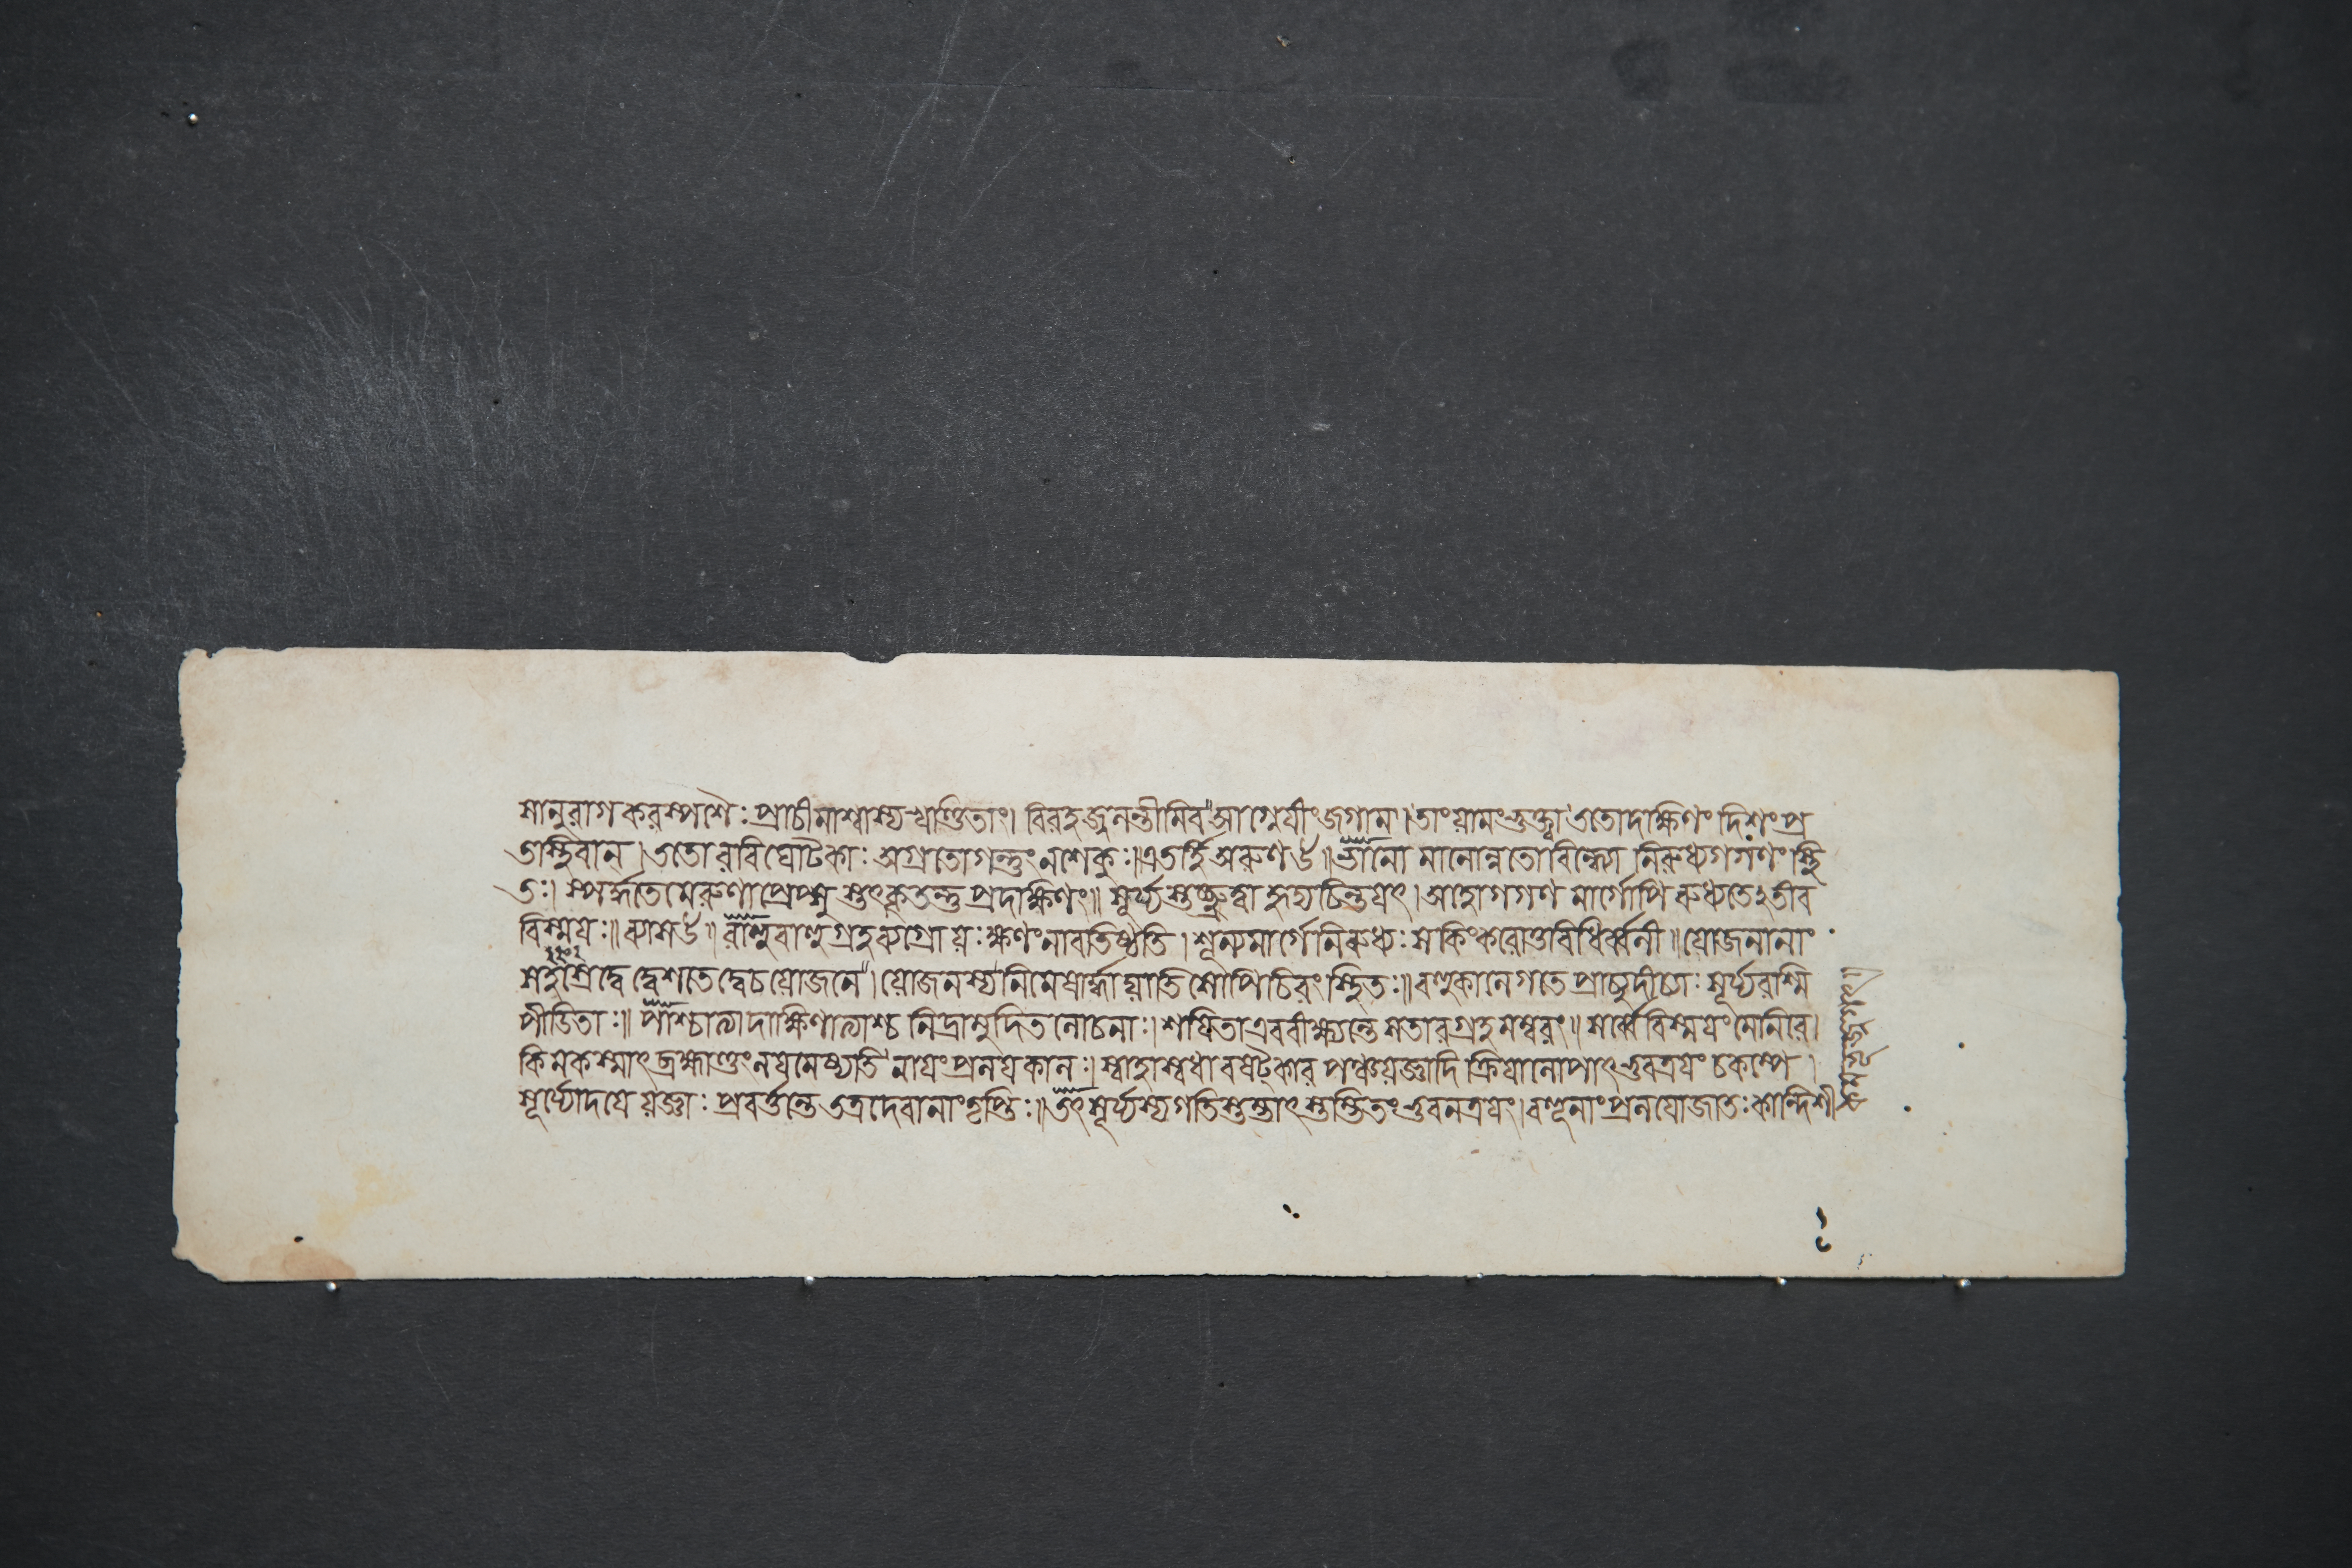 সানুরাগকরস্পর্শৈঃ প্রাচীমাশ্বাস্য খণ্ডিতাং। বিরহজ্বলন্তীমিব আগ্নেয়ীং জগাম। তাং যামং ভুক্ত্বা ততো দক্ষিণং দিশং প্র
তস্থিবান্। ততো রবিঘোটকাঃ অগ্রতো গন্তুং ন শেকুঃ। এতর্হি অরুণ উ॥ ভানো মানোন্নতো বিন্ধ্যো নিরুধ্য গগণং স্থি
তঃ। স্পর্দ্ধতে মেরুণা প্রেপ্সু স্ত্বৎকৃতন্তু প্রদক্ষিণং॥ সূর্য্যস্তচ্ছ্রুত্বা হৃদ্যচিন্তয়ৎ। অহো গগণ মার্গোপি রুধ্যতেঽতীব
বিস্ময়ঃ॥ ব্যাস উ॥ রাহুবাহুগ্রহব্যগ্রো যঃ ক্ষণং নাবতিষ্ঠতি। শূন্যমার্গে নিরুধ্যঃ স কিং করোতু বিধির্ব্বলী॥ যোজনানাং
সহস্রে দ্বে দ্বে শতে দ্বে চ যোজনে। যোজনস্য নিমেষার্দ্ধাদ্যাতি সোপি চিরং স্থিতঃ॥ বহুকালে গতে প্রাচ্যুদীচ্যাঃ সূর্য্যরশ্মি
পীডিতাঃ॥ পাশ্চাত্যা দাক্ষিণাত্যাশ্চ নিদ্রামুদিতলোচনাঃ। শায়িতা এব বীক্ষ্যন্তে সতারগ্রহমম্বরং॥ সর্ব্বে বিস্ময়ং মেনিরে।
কিমকস্মাৎ ব্রহ্মাণ্ডং লয়মেষ্যতি নায়ং প্রলয়কালঃ। স্বাহাস্বধাবষট্কার পঞ্চযজ্ঞাদি ক্রিয়ালোপাৎ ভুবত্রয়ং চকম্পে।
সূর্য্যোদয়ে যজ্ঞাঃ প্রবর্ত্তন্তে তত্র দেবানাং তৃপ্তিঃ॥ তৎ সূর্য্যস্য গতিস্তম্ভাৎ স্তম্ভিতং ভুবনত্রয়ং। বহূনাং প্রলয়ো জাতঃ কান্দিশী